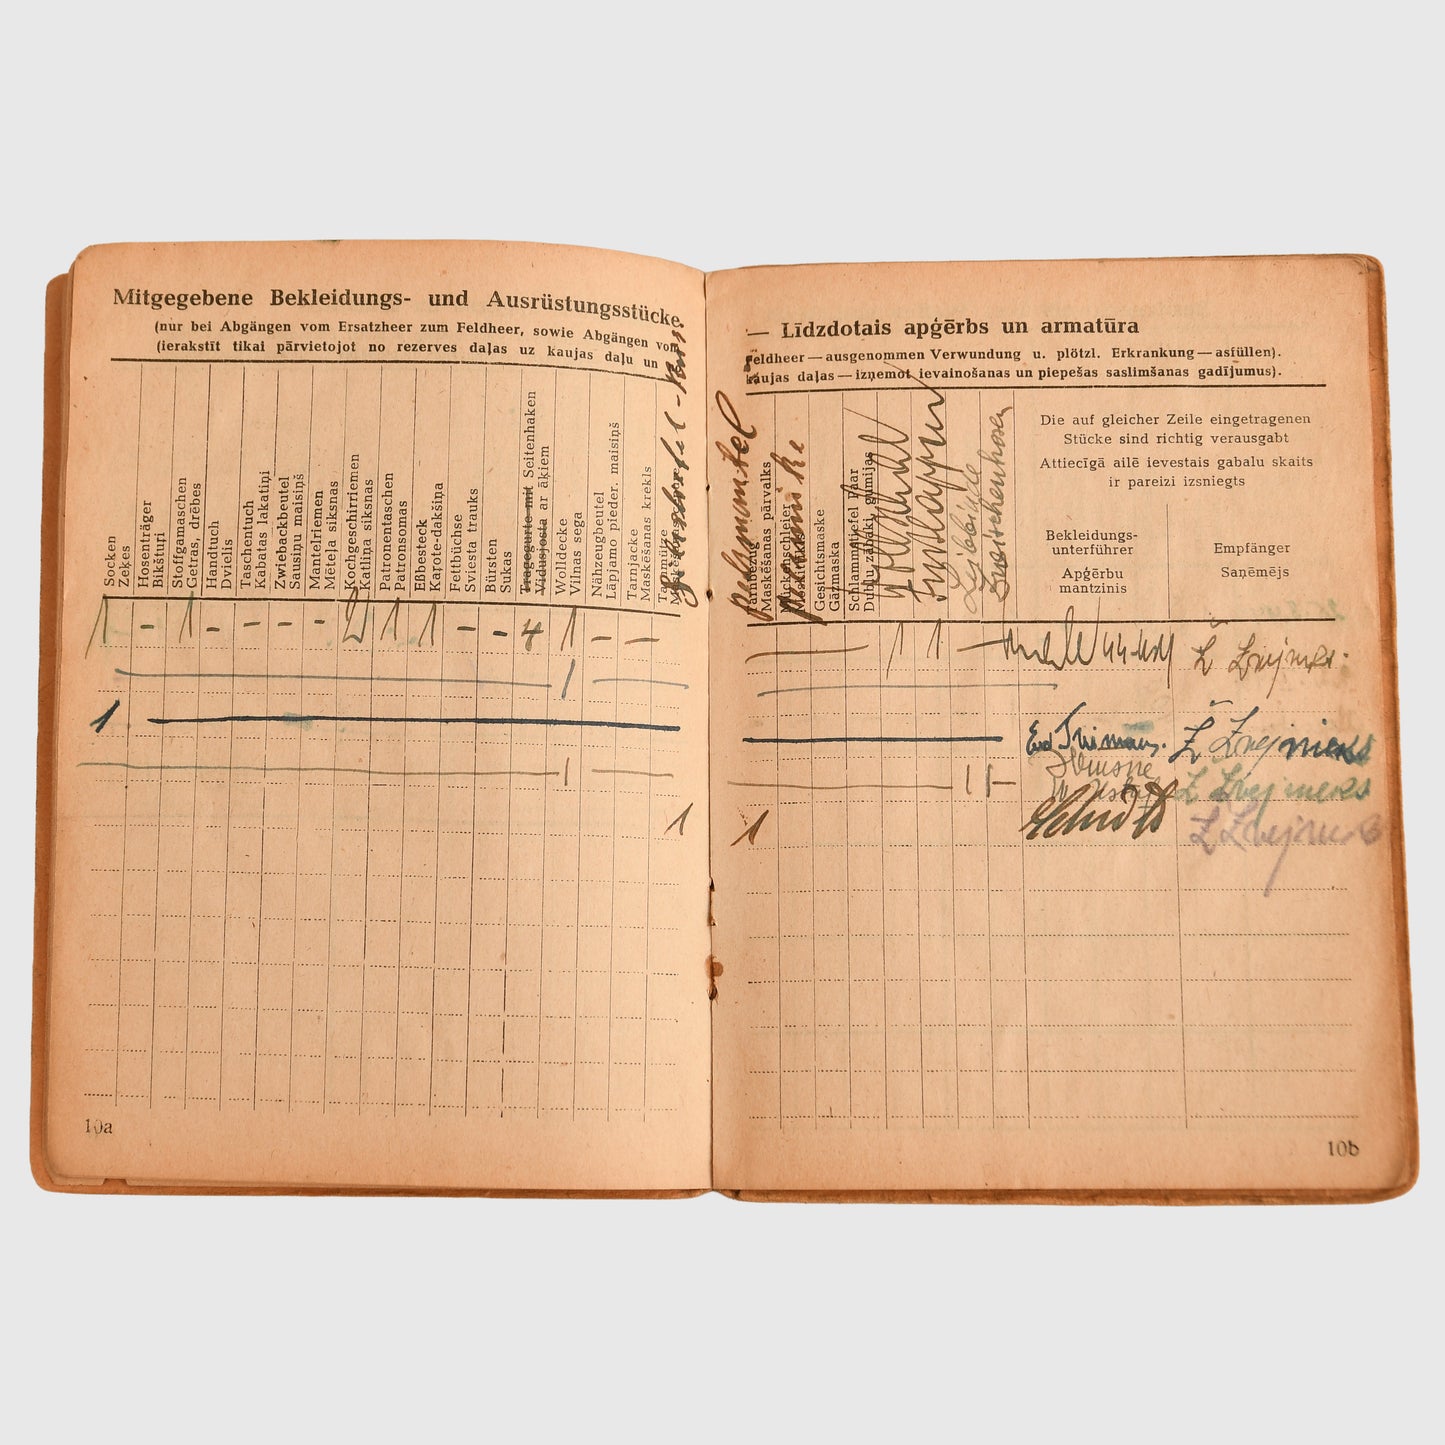 Mitgegebene Bekleidungs- und Ausrüstungsstücke
(nur bei Abgängen vom Ersatzheer zum Feldheer, sowie Abgängen vom
(ierakstīt tikai pārvietojot no rezerves daļas uz kaujas daļu un
Socken
Zeķes
Hosenträger
Bikšturi
Stoffgamaschen
Getras, drēbes
Handtuch
Dvielis
Taschentuch
Kabatas lakatiņi
Zwiebackbeutel
Sausiņu maisiņš
Mantelriemen
Mēteļa siksnas
Kochgeschirriemen
Katliņa siksnas
Patronentaschen
Patronsomas
Eßbesteck
Karote-dakšiņa
Fettbüchse
Sviesta trauks
Bürsten
Sukas
Tragegurte mit Seitenhaken
Vidusjosta ar āķiem
Wolldecke
Vilnas sega
Nähzeugbeutel
Lāpjamo pieder. maisiņš
Tarnjacke
Maskēšanas krekls
Tarnmütze
1 - 1 - - - - 2 1 1 - - 4 1 - -
1
1
1
1
10a
— Līdzdotais apģērbs un armatūra
Feldheer — ausgenommen Verwundung u. plötzl. Erkrankung — asfüllen).
kaujas daļas — izņemot ievainošanas un piepešas saslimšanas gadījumus).
Pelzmantel
Tarnbezug
Maskēšanas pārvalks
Mückenschleier
Gesichtsmaske
Gāzmaska
Schlammstiefel Paar
Dubļu zābaki, gumijas
Fußlappen
Leibbinde
Die auf gleicher Zeile eingetragenen
Stücke sind richtig verausgabt
Attiecīgā ailē ievestais gabalu skaits
ir pareizi izsniegts
Bekleidungs-
unterführer
Apģērbu
mantzinis
Empfänger
Saņēmējs
1 1 —
Ž Zvejnieks
1 1 —
Ž Zvejnieks
1
Schmidt
Ž Zvejnieks
10b